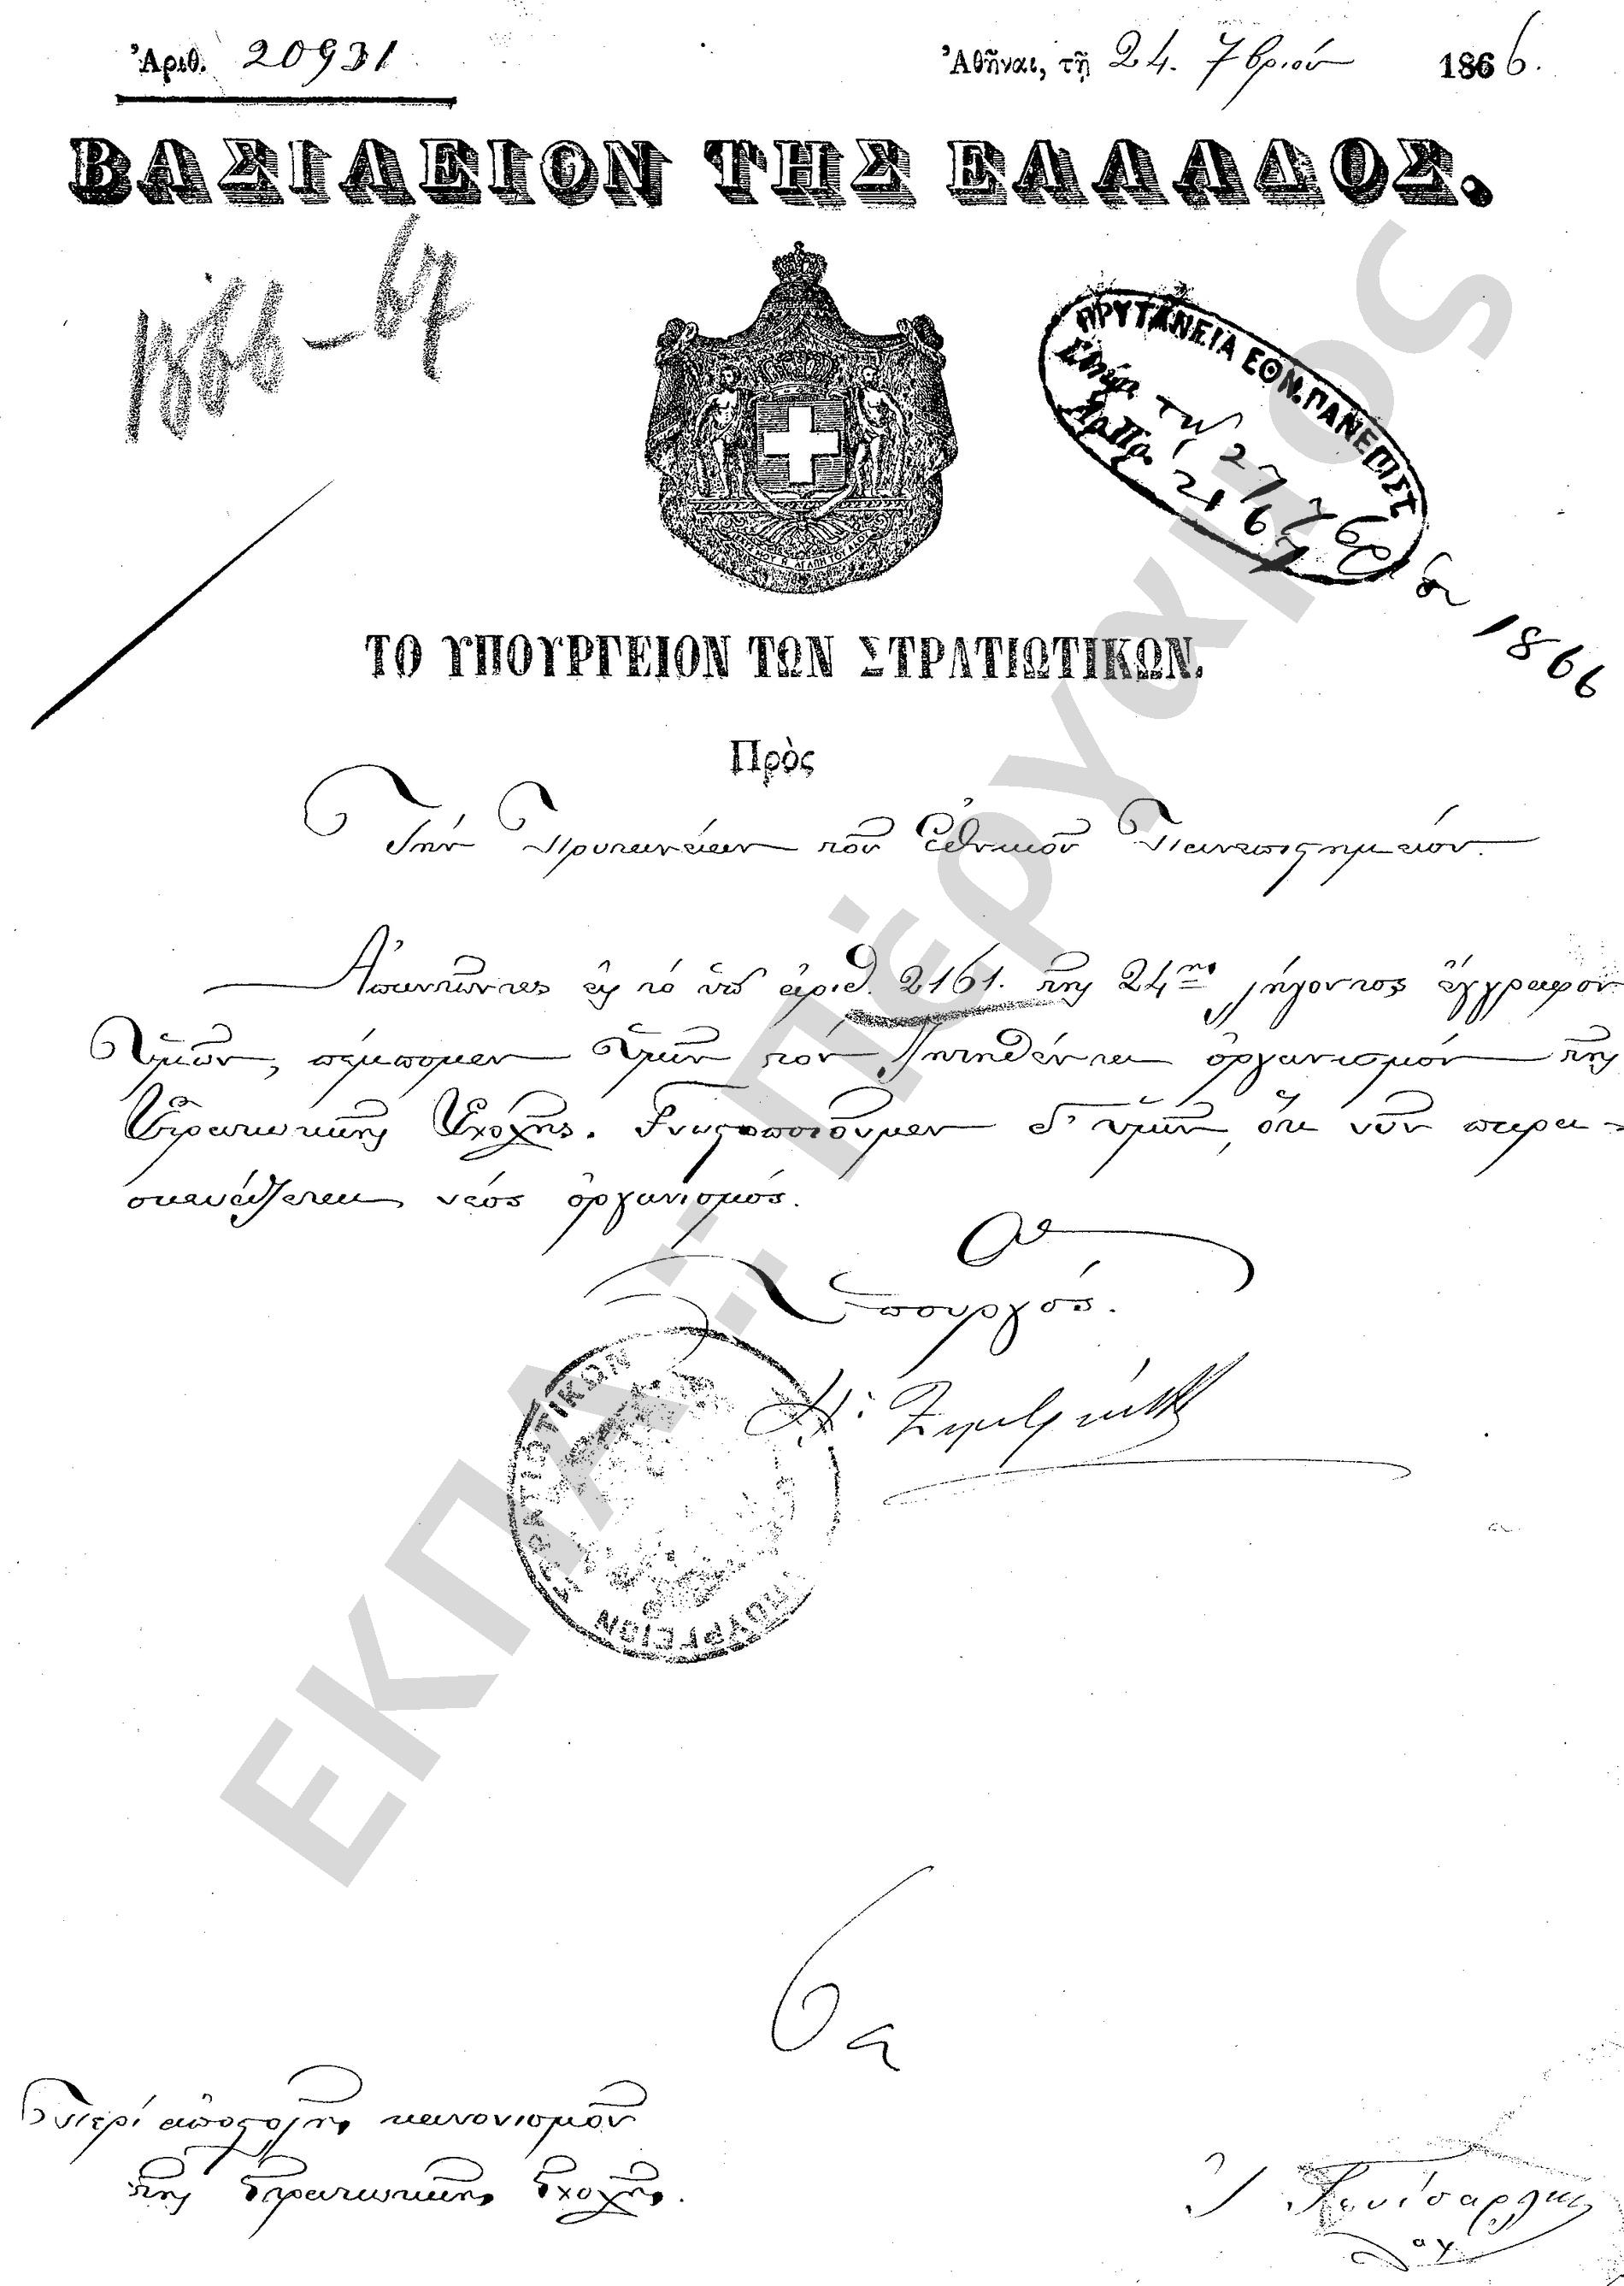 Ἀριθ. 20931
Ἀθῆναι, τῇ 24. 7βρίου 1866.
ΒΑΣΙΛΕΙΟΝ ΤΗΣ ΕΛΛΑΔΟΣ.
1866-67
ΠΡΥΤΑΝΕΙΑ ΕΘΝ. ΠΑΝΕΠΙΣΤ.
τῇ 27 7βρίου 1866
Ἀρ. Πρ. 2167
ΤΟ ΥΠΟΥΡΓΕΙΟΝ ΤΩΝ ΣΤΡΑΤΙΩΤΙΚΩΝ.
Πρὸς
Τήν Πρυτανείαν τοῦ Ἐθνικοῦ Πανεπιστημείου.
Ἀπαντῶντες εἰς τό ὑπ' ἀριθ. 2161. τῆς 24ης λήγοντος ἔγγραφον
Ὑμῶν, πέμπομεν Ὑμῖν τόν ζητηθέντα ὀργανισμόν τῆς
Στρατιωτικῆς Σχολῆς. Γνωστοποιοῦμεν δ' ὑμῖν, ὅτι νῦν παρα-
σκευάζεται νέος ὀργανισμός.
Ὁ
Ὑπουργός.
ΥΠΟΥΡΓΕΙΟΝ ΣΤΡΑΤΙΩΤΙΚΩΝ
6α
Περί ἀποστολῆς κανονισμοῦ
τῆς Στρατιωτικῆς Σχολῆς.
ΕΚΠΑ: Πέργαμος